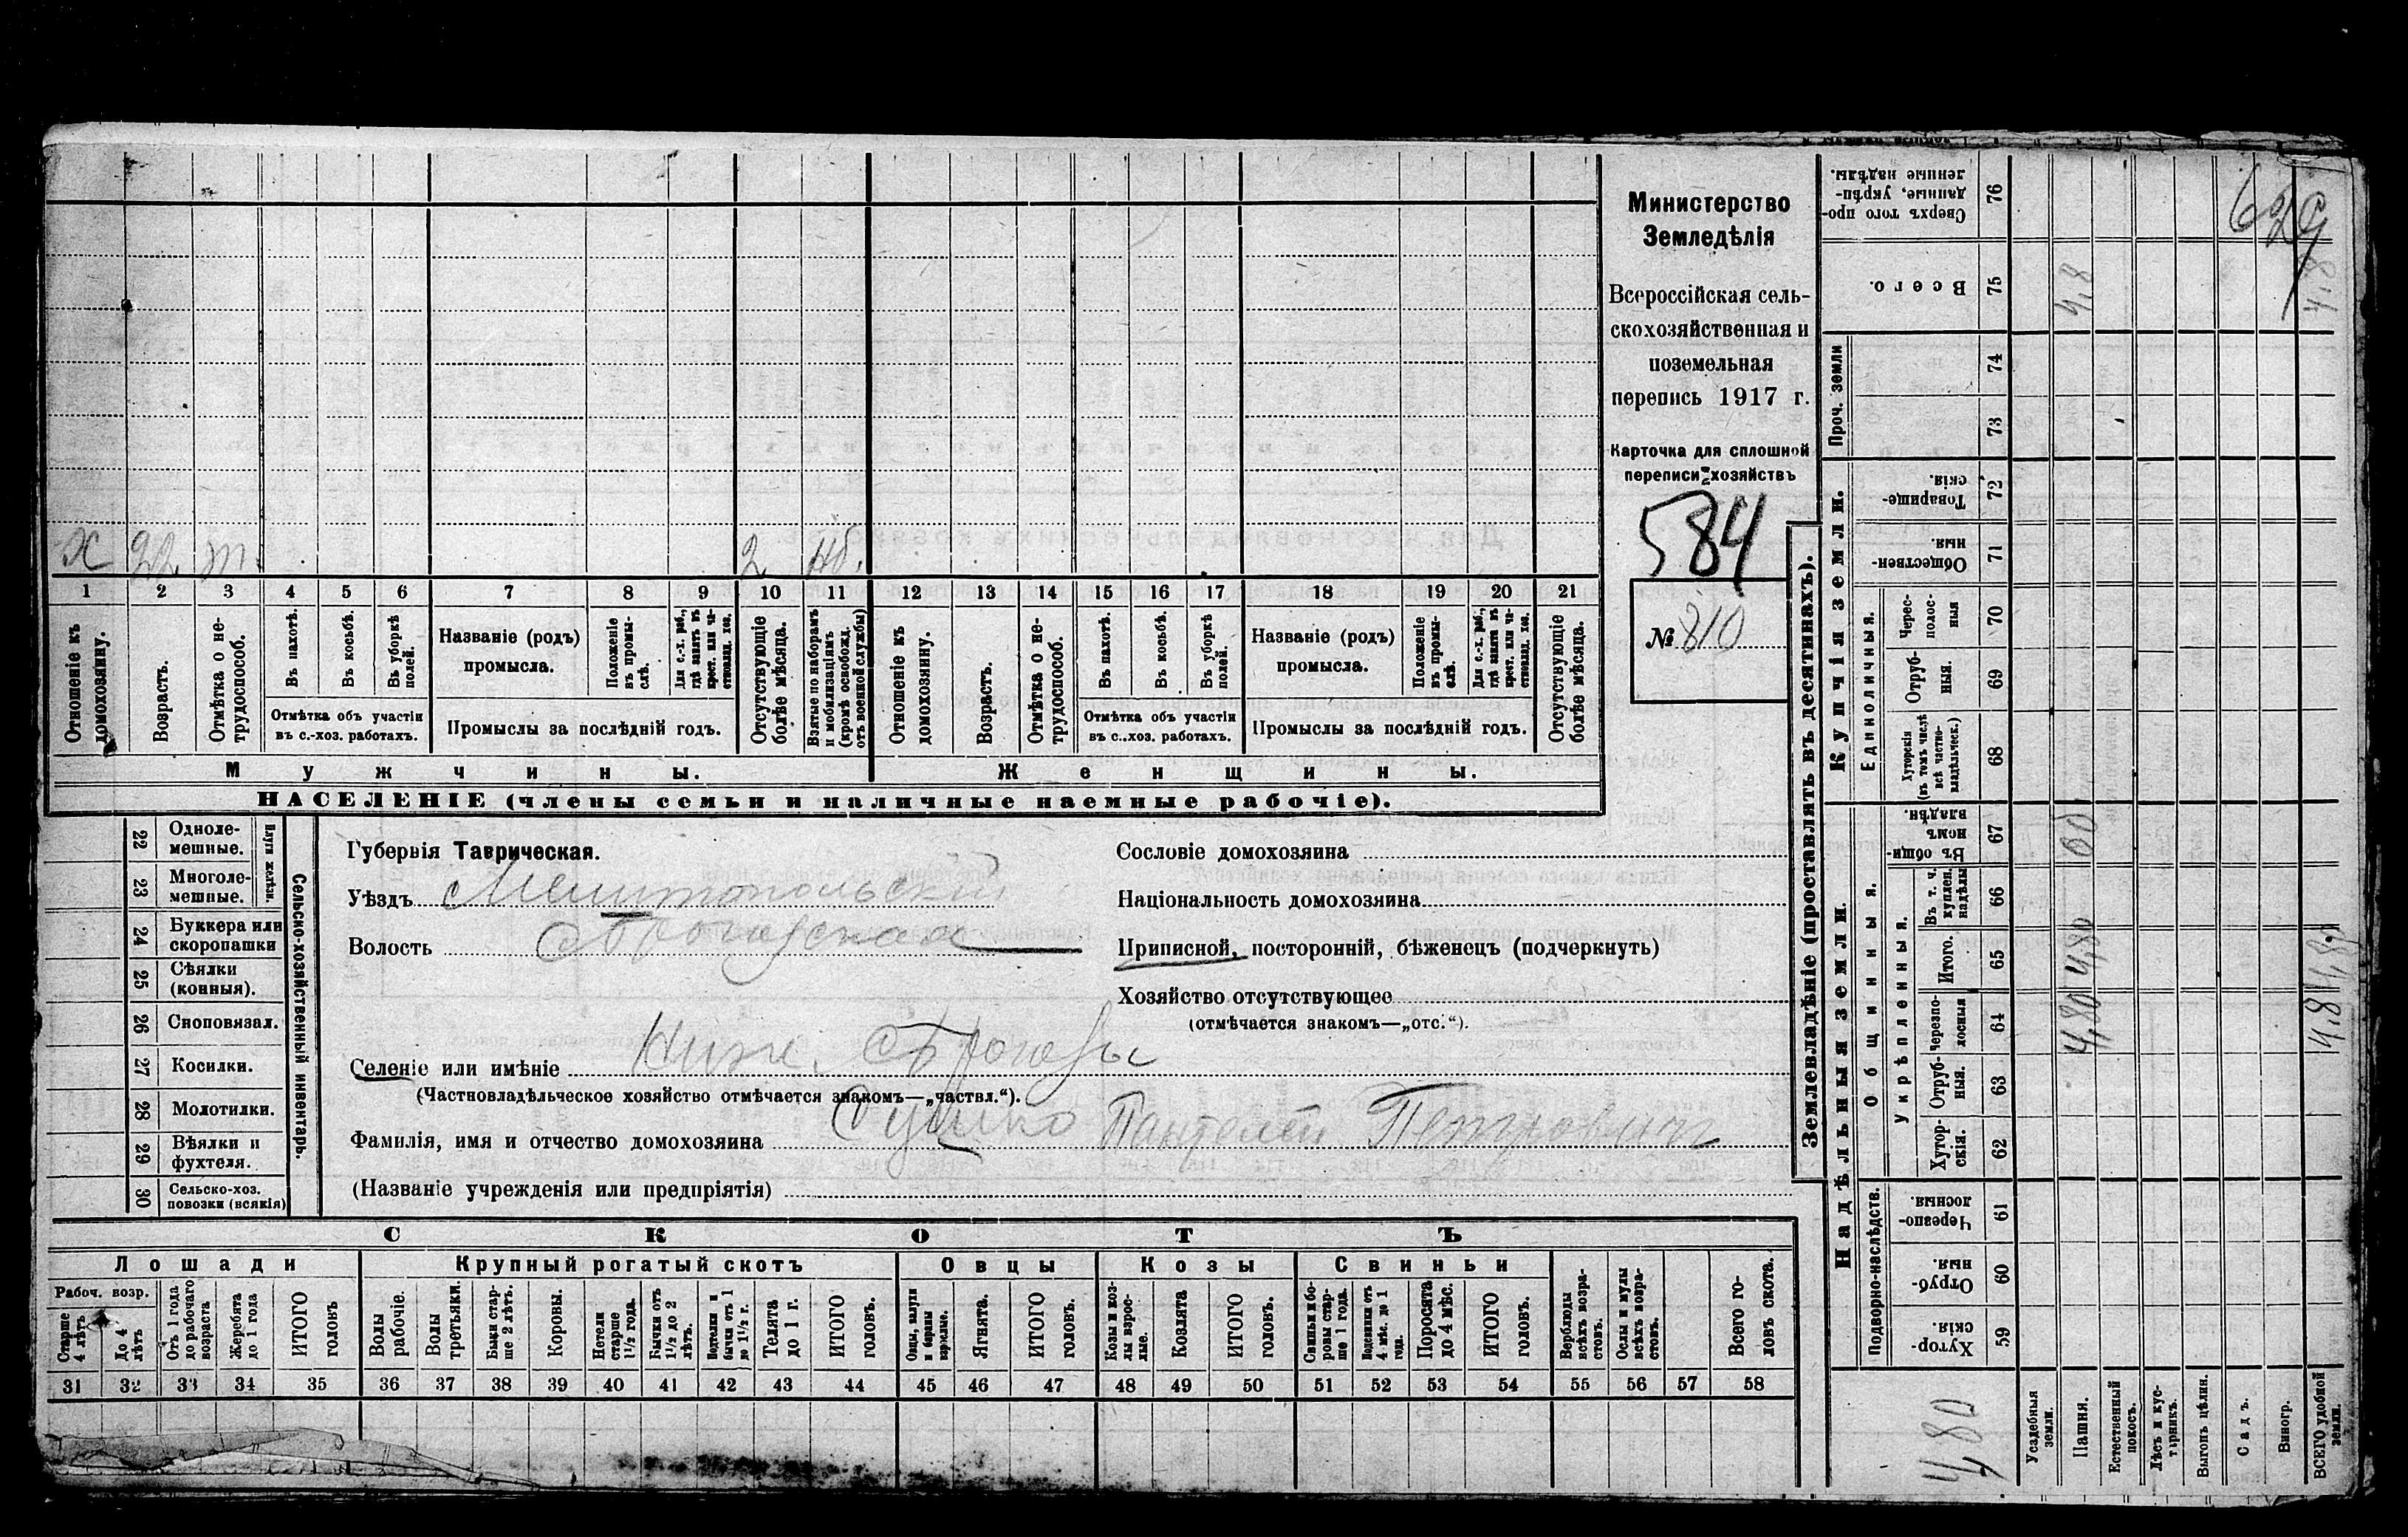 Х 22 т. 2 нб.
1 2 3 4 5 6 7 8 9 10 11 12 13 14 15 16 17 18 19 20 21
Отношеніе къ домохозяину.
Возрастъ.
Отмѣтка о нетрудоспособ.
Въ пахотѣ.
Въ косьбѣ.
Въ уборкѣ полей.
Отмѣтка объ участіи
въ с.-хоз. работахъ.
Названіе (родъ)
промысла.
Положеніе въ промыслѣ.
Для с.-х. раб., гдѣ занятъ въ крест. или частновлад. хоз.
Промыслы за послѣдній годъ.
Отсутствующіе болѣе мѣсяца.
Взятые по наборамъ и мобилизаціямъ (кромѣ освобожд. отъ военной службы)
Отношеніе къ домохозяину.
Возрастъ.
Отмѣтка о нетрудоспособ.
Въ пахотѣ.
Въ косьбѣ.
Въ уборкѣ полей.
Отмѣтка объ участіи
въ с.-хоз. работахъ.
Названіе (родъ)
промысла.
Положеніе въ промыслѣ.
Для с.-х. раб., гдѣ занятъ въ крест. или частновлад. хоз.
Промыслы за послѣдній годъ.
Отсутствующіе болѣе мѣсяца.
Мужчины.
Женщины.
НАСЕЛЕНІЕ (члены семьи и наличные наемные рабочіе).
Министерство
Земледѣлія
Всероссійская сель-
скохозяйственная и
поземельная
перепись 1917 г.
Карточка для сплошной
переписи хозяйствъ
584
№ 810
Сельско-хозяйственный инвентарь.
Плуги желѣзн.
22 Однолемешные.
23 Многолемешные.
24 Буккера или скоропашки
25 Сѣялки (конныя).
26 Сноповязал.
27 Косилки.
28 Молотилки.
29 Вѣялки и фухтеля.
30 Сельско-хоз. повозки (всякія)
Губернія Таврическая.
Уѣздъ Мелитопольскій
Волость
Сословіе домохозяина
Національность домохозяина
Приписной, посторонній, бѣженецъ (подчеркнуть)
Хозяйство отсутствующее
(отмѣчается знакомъ—„отс.“).
Селеніе или имѣніе Ниж. Сѣрогозы
(Частновладѣльческое хозяйство отмѣчается знакомъ—„частвл.“).
Фамилія, имя и отчество домохозяина Сушко Пантелей Петрович
(Названіе учрежденія или предпріятія)
СКОТЪ
Лошади
Крупный рогатый скотъ
Овцы
Козы
Свиньи
Рабоч. возр.
Старше 4 лѣтъ
До 4 лѣтъ
Отъ 1 года до рабочаго возраста
Жеребята до 1 года
ИТОГО головъ
Волы рабочіе.
Волы третьяки.
Быки старше 2 лѣтъ.
Коровы.
Нетели старше 1½ года.
Бычки отъ 1½ до 2 лѣтъ.
Подтелки и бычки отъ 1 до 1½ г.
Телята до 1 г.
ИТОГО головъ.
Овцы, валухи и бараны взрослые.
Ягнята.
ИТОГО головъ.
Козы и козлы взрослые.
Козлята
ИТОГО головъ.
Свиньи и боровы старше 1 года.
Подсвинки отъ 4 мѣс. до 1 года.
Поросята до 4 мѣс.
ИТОГО головъ.
Верблюды всѣхъ возрастовъ.
Ослы и мулы всѣхъ возрастовъ.
Всего головъ скота.
31 32 33 34 35 36 37 38 39 40 41 42 43 44 45 46 47 48 49 50 51 52 53 54 55 56 57 58
Землевладѣніе (проставлять въ десятинахъ).
Купчія земли.
Надѣльныя земли.
Сверхъ того проданные, укрѣпленные надѣлы. 76
Всего. 75 4,8
629
4,8
Проч. земли
74
73
Товарищескія. 72
Общественныя. 71
Единоличныя.
Чересполосныя 70
Отрубныя. 69
Хуторскія (въ томъ числѣ всѣ частновладѣльческ.) 68
Общинныя.
Въ общинномъ владѣн. 67
Укрѣпленныя.
Въ т. ч. куплен. надѣлы 66
Итого. 65 4,80
Черезполосныя 64 4,80
Отрубныя. 63
Хуторскія. 62
4,8
Подворно-наслѣдств.
Черезполосныя. 61
Отрубныя. 60
Хуторскія. 59
4,80
Усадебныя земли.
Пашня.
Естественный покосъ.
Лѣсъ и кустарникъ.
Выгонъ цѣлин.
Садъ.
Виногр.
ВСЕГО удобной земли.